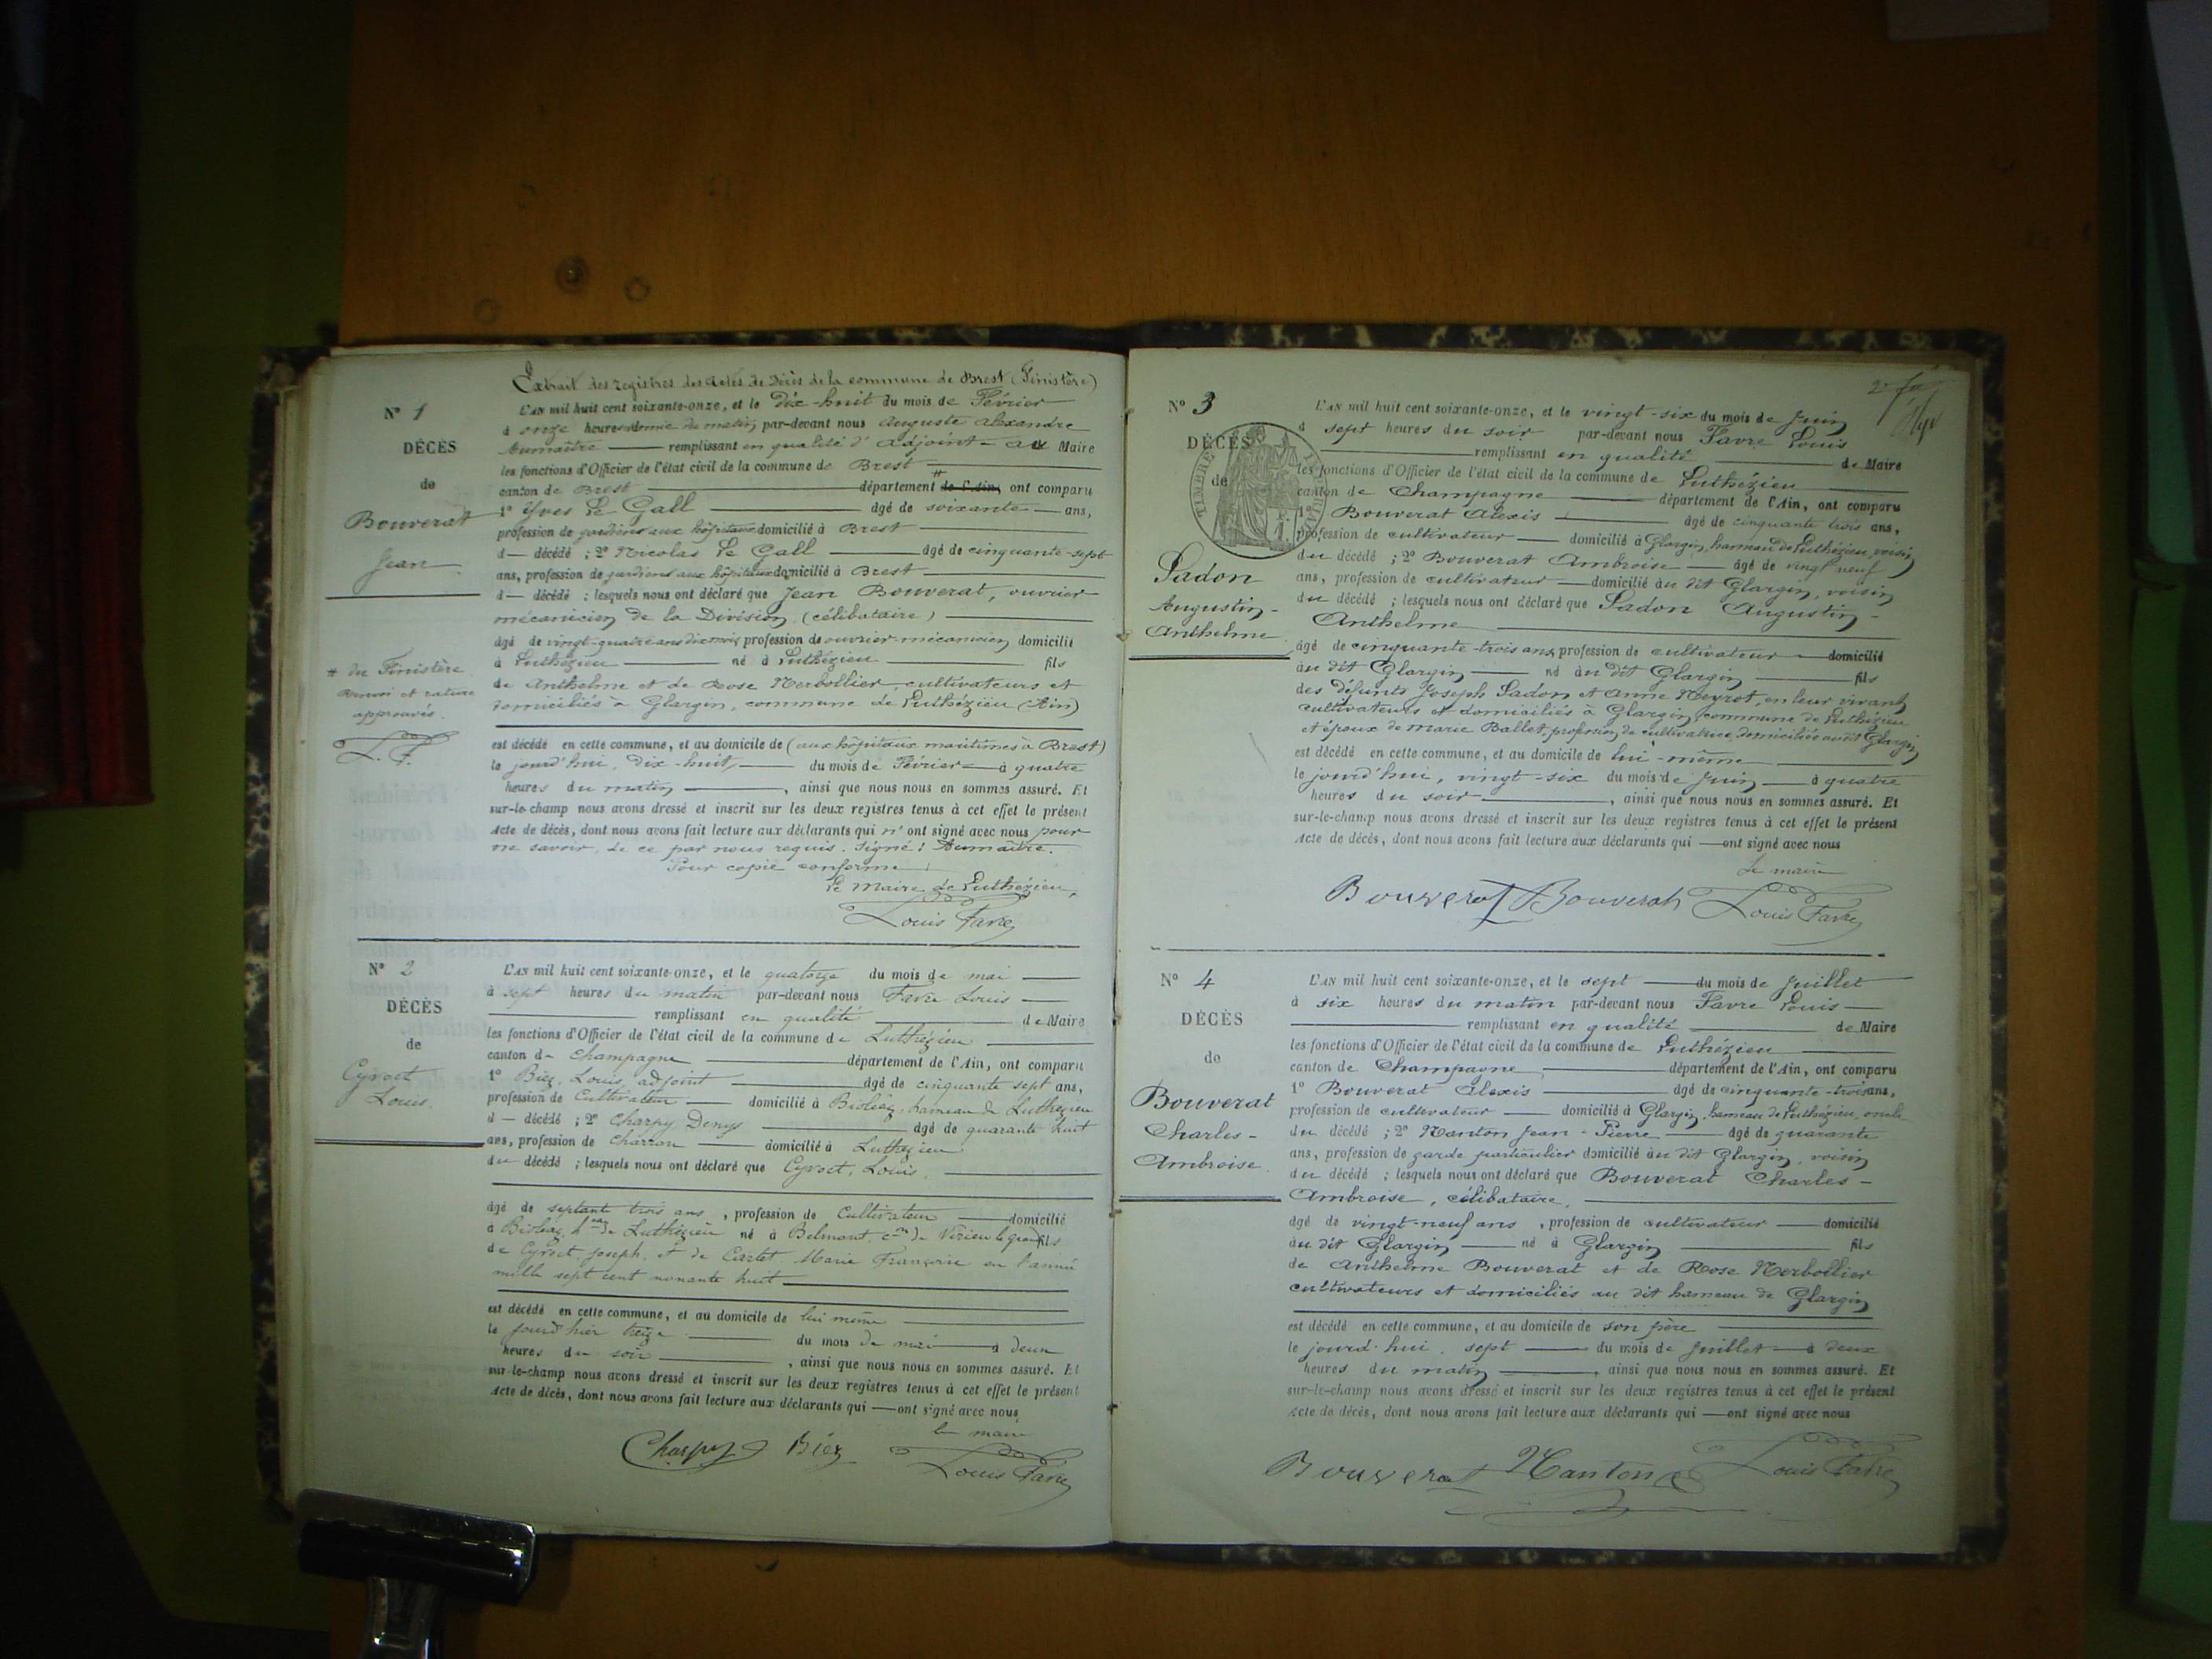 Extrait des registres des actes de Décès de la commune de Brest (Finistère)
N° 1
DÉCÈS
de
Bouverat
Jean
# du Finistère
renvoi et rature
approuvés.
L. F.
L'AN mil huit cent soixante-onze, et le dix-huit du mois de Février
à onze heures et demie du matin, par-devant nous Auguste Alexandre
Aumaître remplissant en qualité d'adjoint au Maire
les fonctions d'Officier de l'état civil de la commune de Brest
canton de Brest # département de l'Ain, ont comparu
1° Yves Le Gall âgé de soixante ans,
profession de gardiens aux hôpitaux domicilié à Brest
d décédé ; 2° Nicolas Le Gall âgé de cinquante-sept
ans, profession de gardiens aux hôpitaux domicilié à Brest
d décédé ; lesquels nous ont déclaré que Jean Bouverat, ouvrier
mécanicien de la Division (célibataire)
âgé de vingt-quatre ans dix mois profession de ouvrier-mécanicien domicilié
à Luthézieu né à Luthézieu fils
de Anthelme et de Rose Nerbollier, cultivateurs et
domiciliés à Glargin, commune de Luthézieu (Ain)
est décédé en cette commune, et au domicile de (aux hôpitaux maritimes à Brest)
le jourd'hui, dix-huit, du mois de Février à quatre
heures du matin, ainsi que nous nous en sommes assuré. Et
sur-le-champ nous avons dressé et inscrit sur les deux registres tenus à cet effet le présent
Acte de décès, dont nous avons fait lecture aux déclarants qui n'ont signé avec nous pour
ne savoir, de ce par nous requis. Signé : Aumaître.
Pour copie conforme :
Le Maire de Luthézieu,
Louis Favre
N° 2
DÉCÈS
de
Cyvoct
Louis.
L'AN mil huit cent soixante-onze, et le quatorze du mois de mai
à sept heures du matin par-devant nous Favre Louis
remplissant en qualité de Maire
les fonctions d'Officier de l'état civil de la commune de Luthézieu
canton de Champagne département de l'Ain, ont comparu
1° Biez, Louis, adjoint âgé de cinquante sept ans,
profession de Cultivateur domicilié à Bioléaz, hameau de Luthézieu
d décédé ; 2° Charpy Denys âgé de quarante huit
ans, profession de Charron domicilié à Luthézieu
du décédé ; lesquels nous ont déclaré que Cyvoct, Louis,
âgé de septante trois ans, profession de Cultivateur domicilié
à Bioléaz, hau de Luthézieu né à Belmont, con de Virieu le grand fils
de Cyvoct, Joseph, et de Cartet Marie Françoise en l'année
mille sept cent nonante huit
est décédé en cette commune, et au domicile de lui même
le jourd'hier treize du mois de mai à deux
heures du soir, ainsi que nous nous en sommes assuré. Et
sur-le-champ nous avons dressé et inscrit sur les deux registres tenus à cet effet le présent
Acte de décès, dont nous avons fait lecture aux déclarants qui ont signé avec nous
le maire
Charpy Biez Louis Favre
N° 3
DÉCÈS
de
Sadon
Augustin-
Anthelme
TIMBRE IMPÉRIAL
L'AN mil huit cent soixante-onze, et le vingt-six du mois de Juin
à sept heures du soir par-devant nous Favre Louis
remplissant en qualité de Maire
les fonctions d'Officier de l'état civil de la commune de Luthézieu
canton de Champagne département de l'Ain, ont comparu
1° Bouverat Alexis âgé de cinquante trois ans,
profession de cultivateur domicilié à Glargin, hameau de Luthézieu, voisin
du décédé ; 2° Bouverat Ambroise âgé de vingt neuf
ans, profession de cultivateur domicilié au dit Glargin, voisin
du décédé ; lesquels nous ont déclaré que Sadon Augustin-
Anthelme
âgé de cinquante-trois ans, profession de cultivateur domicilié
au dit Glargin né au dit Glargin fils
des défunts Joseph Sadon et Anne Neyret, en leur vivant
cultivateurs et domiciliés à Glargin, commune de Luthézieu
et époux de Marie Ballet, profession de cultivatrice, domiciliée au dit Glargin
est décédé en cette commune, et au domicile de lui-même
le jourd'hui, vingt-six du mois de Juin à quatre
heures du soir, ainsi que nous nous en sommes assuré. Et
sur-le-champ nous avons dressé et inscrit sur les deux registres tenus à cet effet le présent
Acte de décès, dont nous avons fait lecture aux déclarants qui ont signé avec nous
Le maire
Bouverat Bouverat Louis Favre
N° 4
DÉCÈS
de
Bouverat
Charles-
Ambroise.
L'AN mil huit cent soixante-onze, et le sept du mois de Juillet
à six heures du matin par-devant nous Favre Louis
remplissant en qualité de Maire
les fonctions d'Officier de l'état civil de la commune de Luthézieu
canton de Champagne département de l'Ain, ont comparu
1° Bouverat Alexis âgé de cinquante-trois ans,
profession de cultivateur domicilié à Glargin, hameau de Luthézieu, oncle
du décédé ; 2° Nanton Jean-Pierre âgé de quarante
ans, profession de garde particulier domicilié au dit Glargin, voisin
du décédé ; lesquels nous ont déclaré que Bouverat Charles-
Ambroise, célibataire,
âgé de vingt-neuf ans, profession de cultivateur domicilié
au dit Glargin né à Glargin fils
de Anthelme Bouverat et de Rose Nerbollier
cultivateurs et domiciliés au dit hameau de Glargin
est décédé en cette commune, et au domicile de son père
le jourd'hui, sept du mois de Juillet à deux
heures du matin, ainsi que nous nous en sommes assuré. Et
sur-le-champ nous avons dressé et inscrit sur les deux registres tenus à cet effet le présent
Acte de décès, dont nous avons fait lecture aux déclarants qui ont signé avec nous
Bouverat Nanton Louis Favre